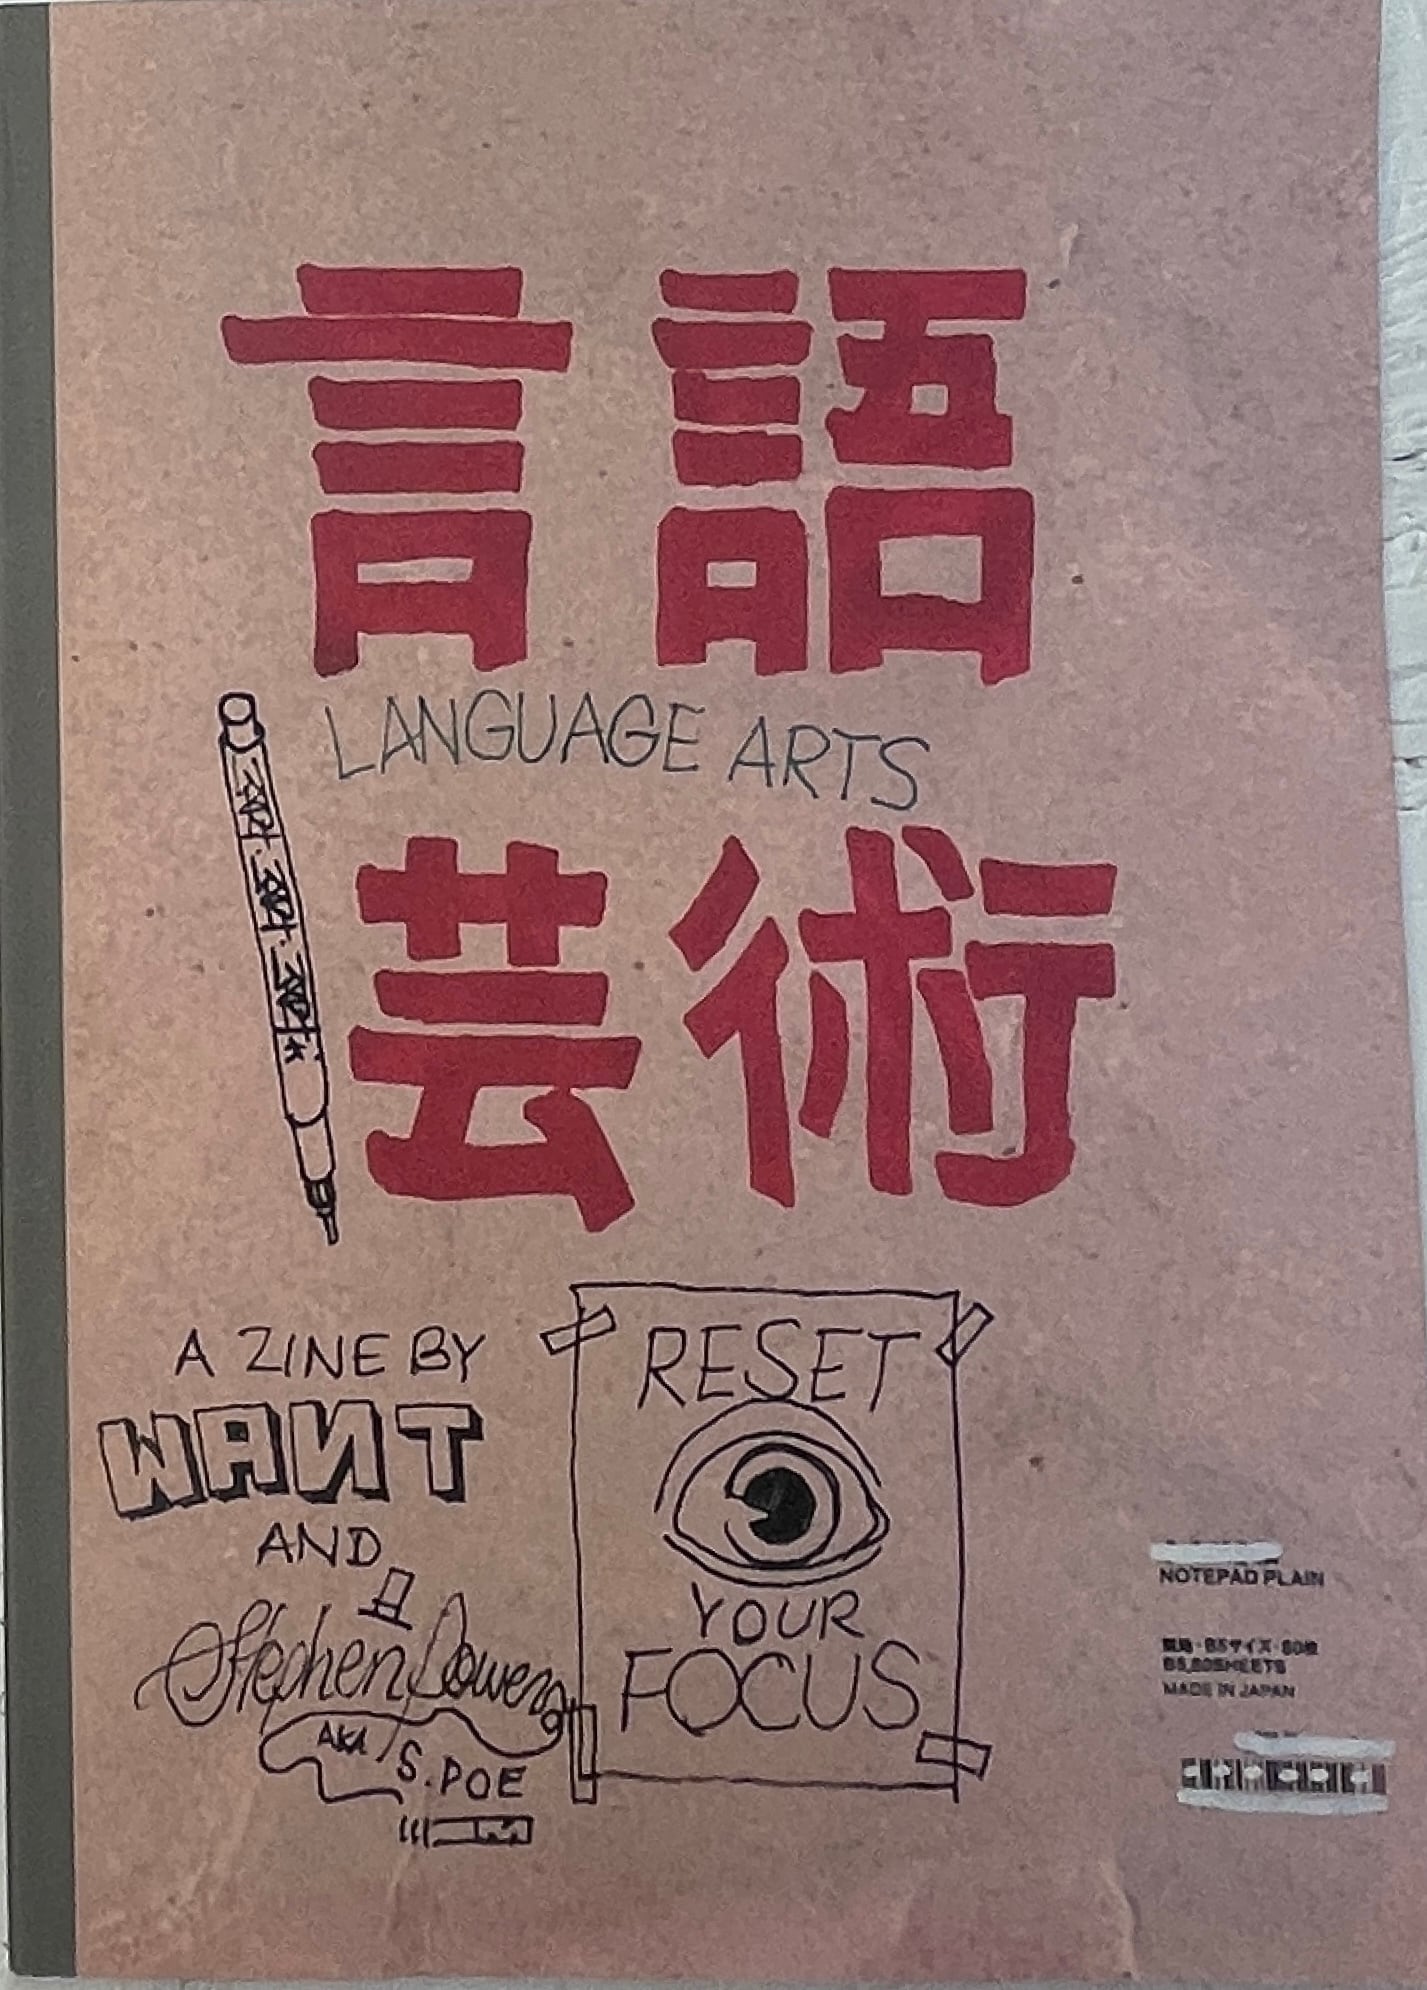 言語
LANGUAGE ARTS
芸術
A ZINE BY
WANT
AND
Stephen Powers
AKA S.POE
RESET
YOUR
FOCUS
NOTEPAD PLAIN
無地・B5サイズ・80枚
B5,80SHEETS
MADE IN JAPAN